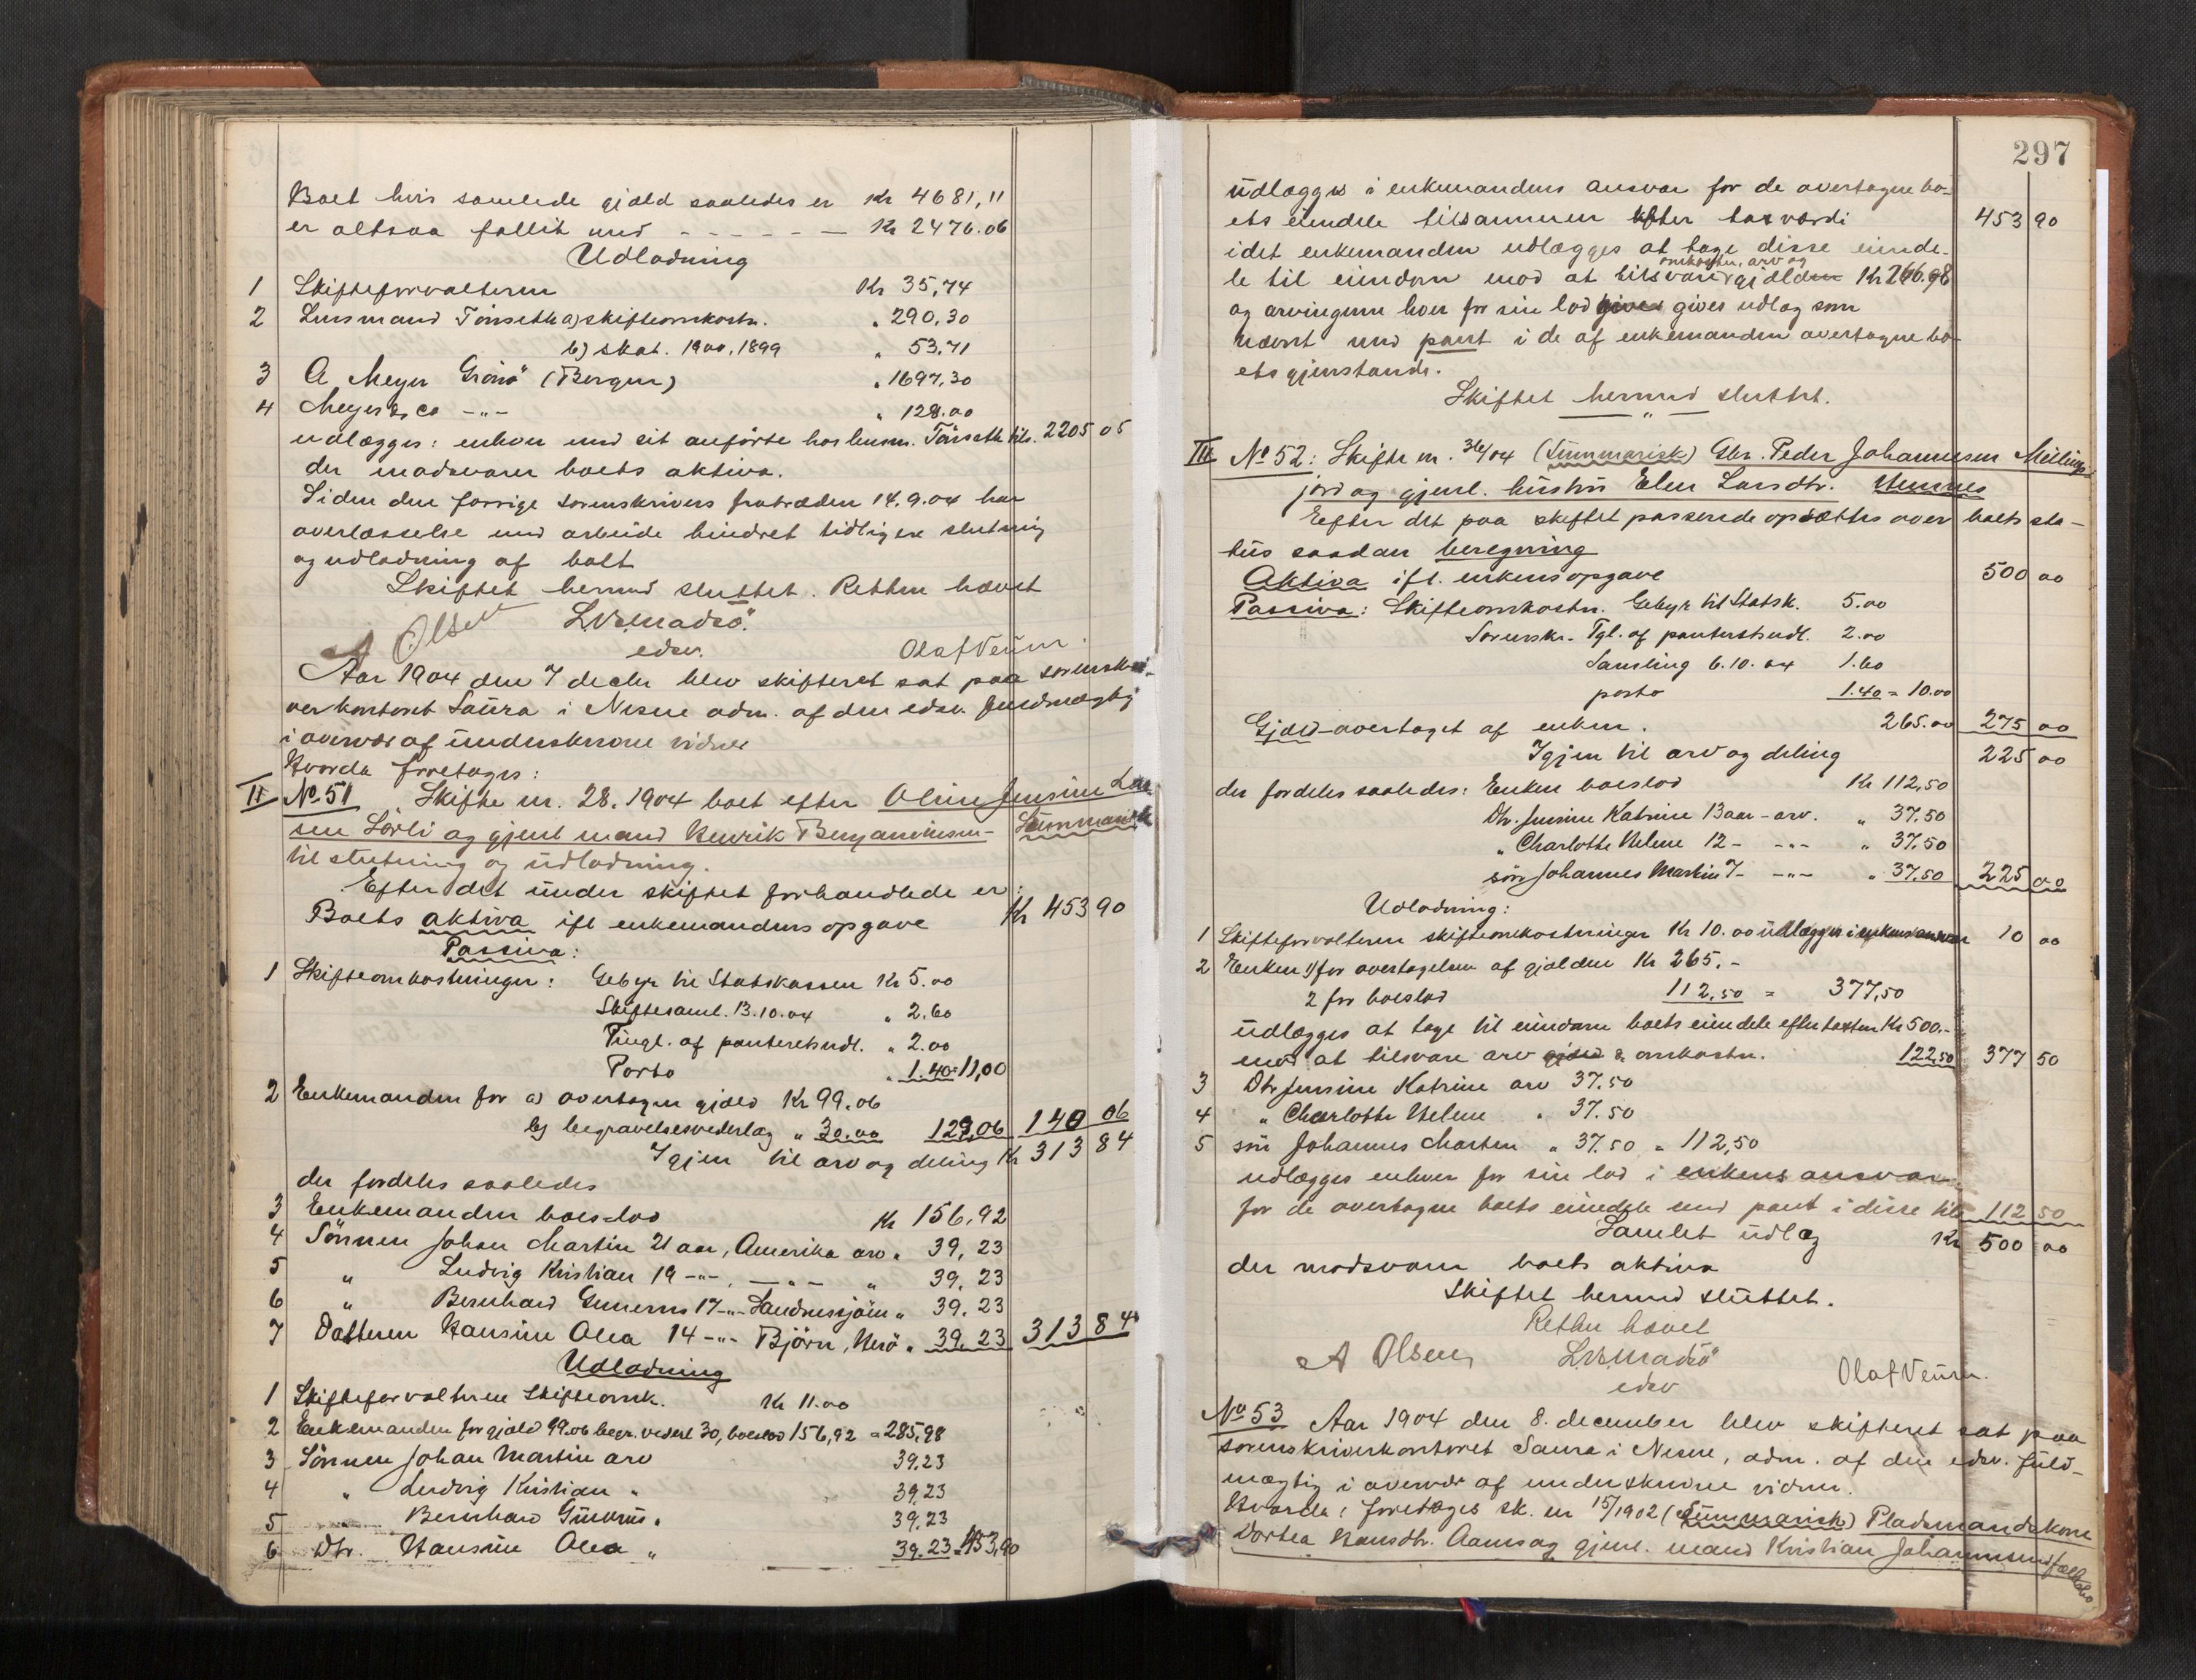 Boet hvis samlede gjæld saaledes er Kr 4681,11
er altsaa fallit med - - - - - - Kr 2476.06
Udlodning
1 Skifteforvalteren Kr 35,74
2 Lensmand Tønseth a) skifteomkostn. " 290,30
b) skat. 1900, 1899 " 53,71
3 A Meyer Grønsö (Bergen) " 1697,30
4 Meyer & Co -"- " 128.00
udlægges: enhver med sit anførte hos lensm. Tønseth tils. 2205 05
der modsvarer boets aktiva.
Siden den forrige sorenskrivers fratræden 14.9.04 har
overlæsselse med arbeide hindret tidligere slutning
og udlodning af boet
Skiftet hermed sluttet. Retten hævet
A Olsen L.W.Madsö
edsv. Olaf Veum
Aar 1904 den 7 decbr blev skifteret sat paa sorenskri-
verkontoret Saura i Nesne adm. af den edsv. fuldmægtig
i overvær af underskrevne vidner
Hvorda foretoges:
II No 51 Skifte nr. 28. 1904 boet efter Oline Jensine Lar
sen Sörli og gjenl mand Henrik Benjaminsen - Summarisk
til slutning og udlodning.
Efter det under skiftet forhandlede er:
Boets aktiva ifl enkemandens opgave Kr 453 90
Passiva:
1 Skifteomkostninger: Gebyr til Statskassen Kr 5.00
Skiftesaml. 13.10.04 " 2.60
Tingl. af panteretsudl. " 2.00
Porto " 1.40 = 11,00
2 Enkemanden for a) overtagen gjæld Kr 99.06
b) begravelsesvederlag " 30.00 129,06 140 06
Igjen til arv og deling Kr 313 84
der fordeles saaledes
3 Enkemanden boeslod Kr 156,92
4 Sönnen Johan Martin 21 aar, Amerika arv " 39,23
5 " Ludvig Kristian 19 -"- , -"- " 39.23
6 " Bernhard Gunerus 17 -"- Sandnessjöen " 39.23
7 Datteren Hansine Olea 14 -"- Björn, Herö " 39.23 313 84
Udlodning
1 Skifteforvalteren Skifteomk. Kr 11.00
2 Enkemanden for gjæld 99.06 begr. vederl 30, boeslod 156,92 = 285,98
3 Sönnen Johan Martin arv 39.23
4 " Ludvig Kristian " 39.23
5 " Bernhard Gunerus " 39.23
6 Dtr. Hansine Olea " 39.23 = 453,90
297
udlægges i enkemandens ansvar for de overtagne bo-
ets eiendele tilsammen efter taxværdi 453 90
idet enkemanden udlægges at tage disse eiende-
omkostn, arv og
le til eiendom mod at tilsvare gjælden Kr 266.98
og arvingerne hver for sin lod gives gives udlæg som
nævnt med pant i de af enkemanden overtagne bo-
ets gjenstande.
Skiftet hermed sluttet.
III No 52: Skifte nr. 36/04 (Summarisk) Gbr. Peder Johannesen Meilings
jord og gjenl. hustru Elen Larsdtr. Hemnes
Eefter det paa skiftet passerede opsættes over boets sta-
tus saadan beregning
Aktiva ifl. enkens opgave 500 00
Passiva: Skifteomkostn. Gebyr til Statsk. 5.00
Sorenskr. Tgl. af panteretsudl. 2.00
Samling 6.10.04 1.60
porto 1.40 = 10.00
Gjæld overtaget af enken. 265.00 275 00
Igjen til arv og deling 225 00
der fordeles saaledes: Enken boeslod Kr 112,50
Dtr. Jensine Katrine 13 aar - arv. " 37.50
" Charlotte Helene 12 - -"- " 37.50
sön Johannes Martin 7 - -"- " 37.50 225 00
Udlodning:
1 Skifteforvalteren skifteomkostninger Kr 10.00 udlægges i enkens ansvar 10 00
2 Enken 1) for overtagelsen af gjælden Kr 265.-
2 for boeslod 112,50 = 377,50
udlægges at tage til eiendom boets eiendele efter taxten Kr 500.-
mod at tilsvare arv gjæld & omkostn. 122,50 377 50
3 Dtr Jensine Katrine arv 37.50
4 " Charlotte Helene " 37.50
5 sön Johannes Marten " 37.50 = 112,50
udlægges enhver for sin lod i enkens ansvar
for de overtagne boets eiendele med pant i disse tils 112 50
Samlet udlæg Kr 500 00
der modsvarer boets aktiva
Skiftet hermed sluttet.
Retten hævet
A Olsen L.W.Madsö Olaf Veum.
edsv
No 53 Aar 1904 den 8. december blev skifteret sat paa
sorenskriverkontoret Saura i Nesne, adm. af den edsv. fuld-
mægtig i overvær af underskrevne vidner.
Hvorda: foretoges sk. nr 15/1902 (Summarisk) Pladsmandskone
Dortea Hansdtr. Aamo og gjenl. mand Kristian Johannesen